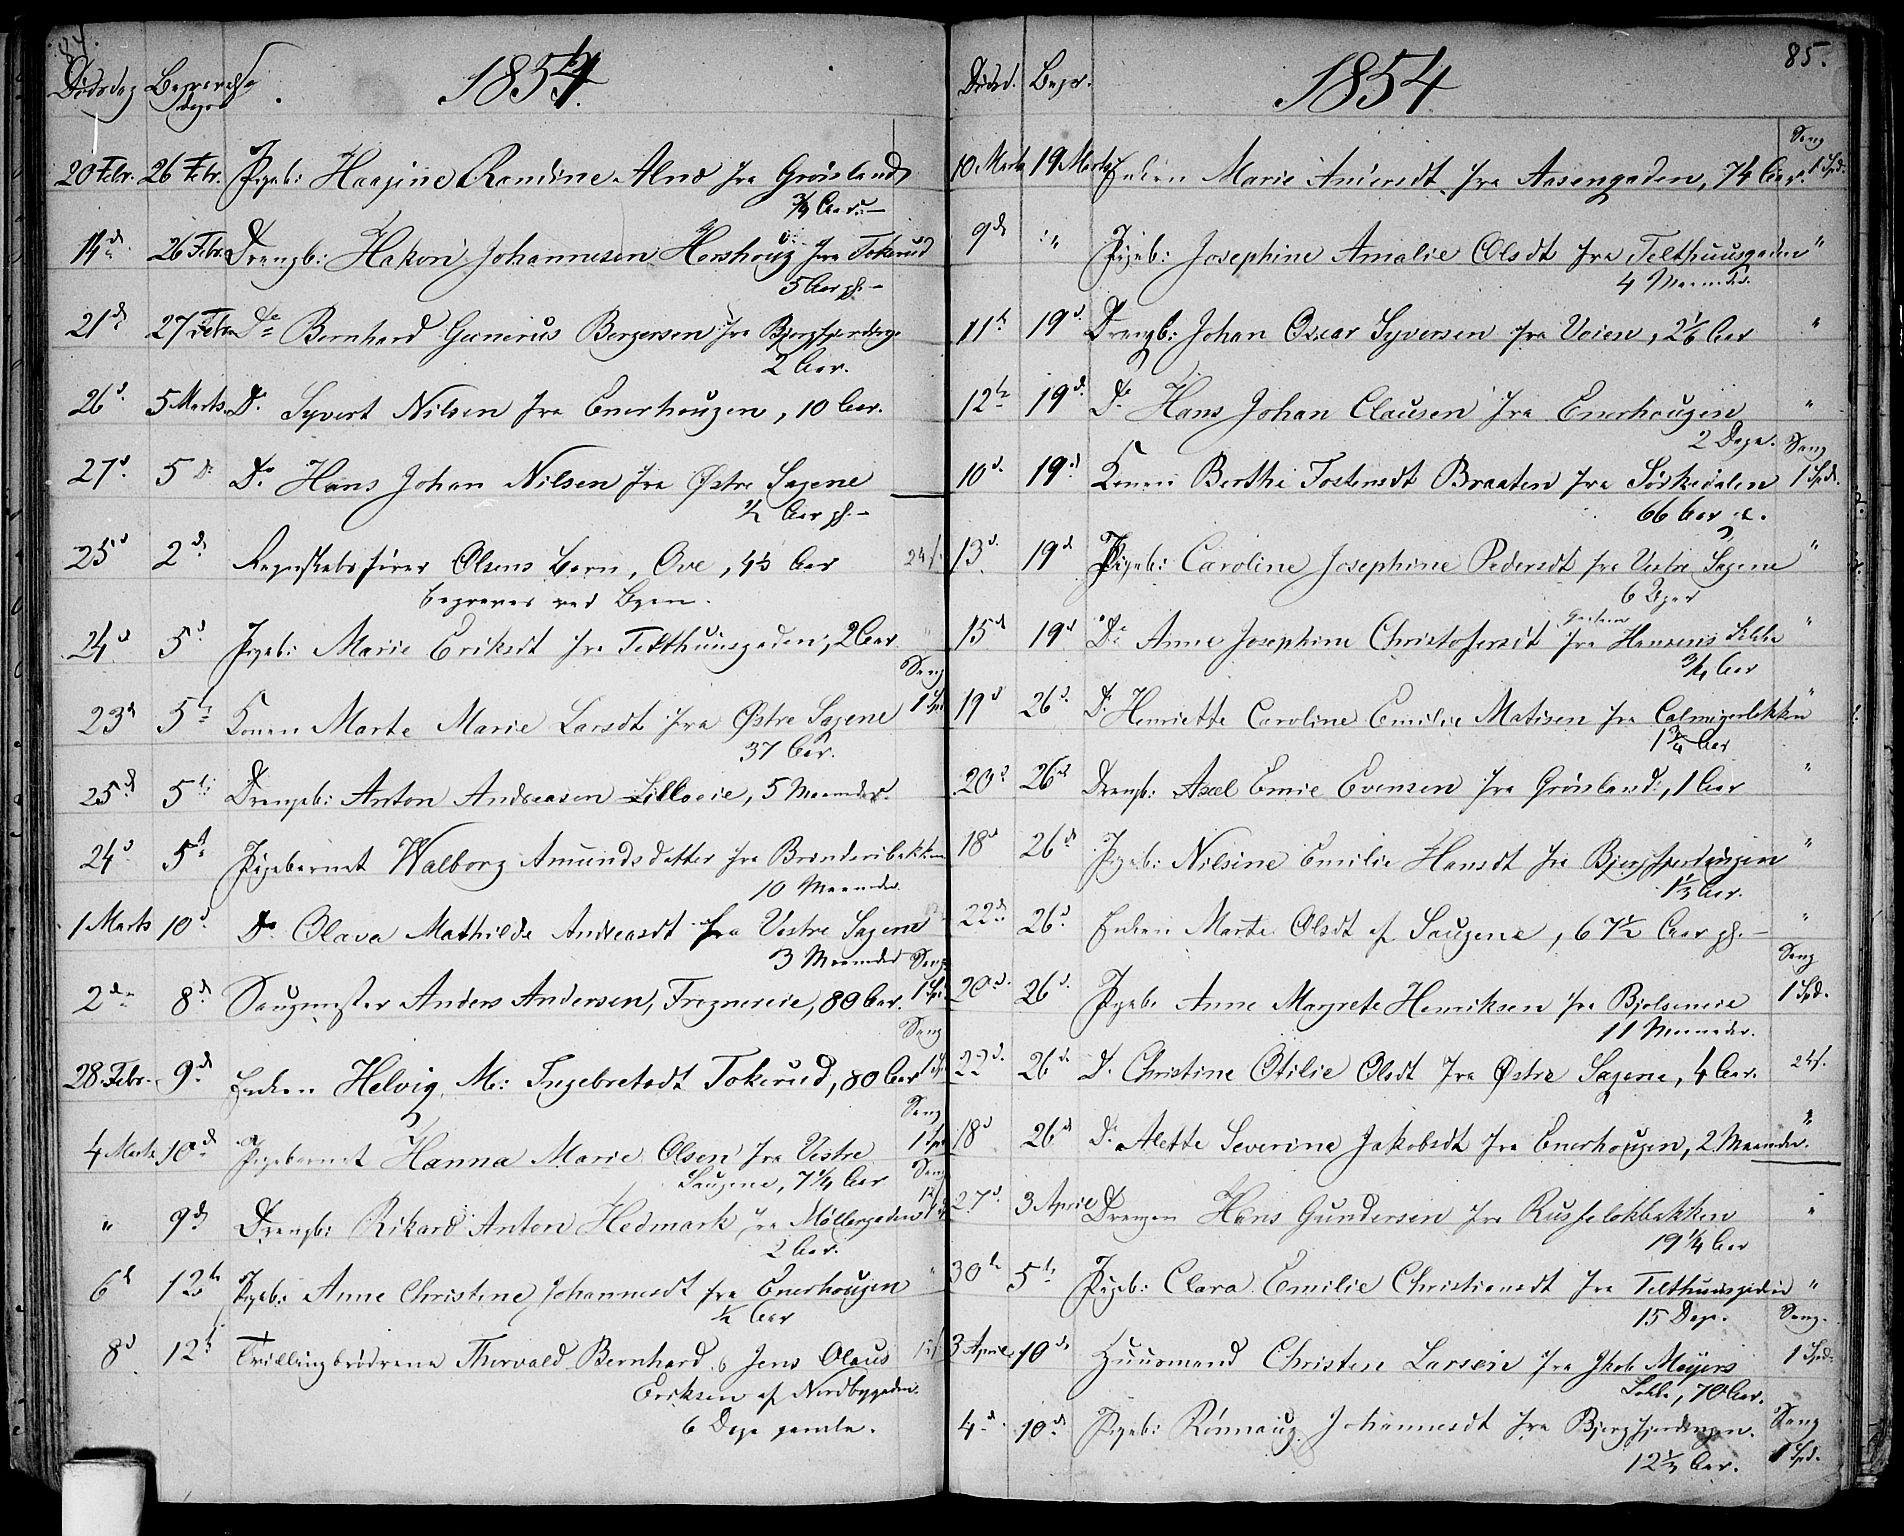 84.
Dødsdag Begravelse dage 1854.
20 Febr. 26 Febr. Pigeb: Haagine Randine Alnæ fra Grønland
3/4 Aar.
14 d. 26 Febr. Drengb: Hakon Johannesen Horshoug fra Tokerud
5 Aar gl.
21 d. 27 Febr. Do Bernhard Gunerus Bergersen fra Bjergfjerding
2 Aar.
26 d. 5 Marts Do Syvert Nilsen fra Enerhougen, 10 Aar.
27 d. 5 Do Do Hans Johan Nilsen fra Østre Sagene
1/2 Aar gl.
25 d 2 d. Regnskabsfører Olsens Barn, Ove, 4 1/3 Aar 24 s.
begraves ved Byen.
24 d 5 d. Pigeb: Marie Eriksdt fra Telthuusgaden, 2 Aar "
Sang
23 d 5 te Konen Marte Marie Larsdt fra Østre Sagene 1 Spd
37 Aar.
25 d 5 te Drengeb: Anton Andreasen Lilloeie, 5 Maaneder.
24 d 5 te Pigebarnet Walborg Amundsdatter fra Brinderibakken
10 Maaneder.
1 Marts 10 d. Do Olava Mathilde Andreasdt fra Vestre Sagene
3 Maaneder Sang
2 den 8 d. Saugmester Anders Andersen, Frognereie, 80 Aar. 1 Spd
Sang
28 Febr. 9 d. Enken Helvig M: Ingebretsdt Tokerud, 80 Aar 1 Sp
Sang
4 Marts 10 d. Pigebarnet Hanna Marie Olsen fra Vestre 1 Spd
Saugene, 7 1/4 Aar Sang
" 9 d. Drengb: Rikard Anton Hedmark fra Møllergaden
2 Aar.
6 d 12 te Pigeb: Anne Christine Johannesdt fra Enerhougen "
1/2 Aar
8 d 12 te Tvillingbrødrene Thorvald Bernhard & Jens Olaus
Eriksen af Nordbygaden.
6 Dage gamle.
85.
Dødsd. Begr. 1854
Sang
10 Marts 19 Marts Enken Marie Andersdt fra Aasengaden, 74 Aar. 1 Spd.
9 d. " Pigeb: Josephine Amalie Olsdt fra Telthuusgaden "
4 Maaneder.
11 te 19 d. Drengb: Johan Oscar Syversen fra Veien, 2 1/6 Aar "
12 te 19 d. Do Hans Johan Clausen fra Enerhougen "
2 Dage. Sang
10 d. 19 d Konen Berthe Tostensdt Braaten fra Sørkedalen 1 Spd.
66 Aar gl.
13 d. 19 d Pigeb: Caroline Josephine Pedersdt fra Vestre Sagene "
6 Uger
15 d 19 d Do Anne Josephine Christofersdt fra Hansens Løkke "
3/4 Aar
19 d 26 d. Do Henriette Caroline Emilie Matisen fra Calmeyerløkken "
1 3/4 Aar
20 d 26 d Drengb: Axel Emil Evensen fra Grønland, 1 Aar "
18 d 26 d Pigeb: Nilsine Emilie Hansdt fra Bjergfjerdingen "
1 1/3 Aar.
22 d. 26 d. Enken Marte Olsdt af Saugene, 67 1/2 Aar gl. "
Sang
20 d. 26 d. Pigeb. Anne Margrete Henriksen fra Bjølseneie 1 Spd.
11 Maaneder.
22 d. 26 d. Do Christine Otilie Olsdt fra Østre Sagene, 4 Aar. 24 s.
18 d 26 d Do Alette Severine Jakobsdt fra Enerhougen, 2 Maaneder. "
27 d. 3 April Drengen Hans Gundersen fra Rusfeløkbakken "
19 1/4 Aar
30 te 5 te Pigeb: Clara Emilie Christiansdt fra Telthuusgaden "
15 Dage. Sang.
3 April 10 d. Huusmand Christen Larsen fra Jkob Meyers 1 Spd.
Løkke, 70 Aar.
4 d. 10 d Pigeb: Rønnaug Johannesdt fra Bjergfjerdingen. Sang
12 1/3 Aar. 1 Spd.